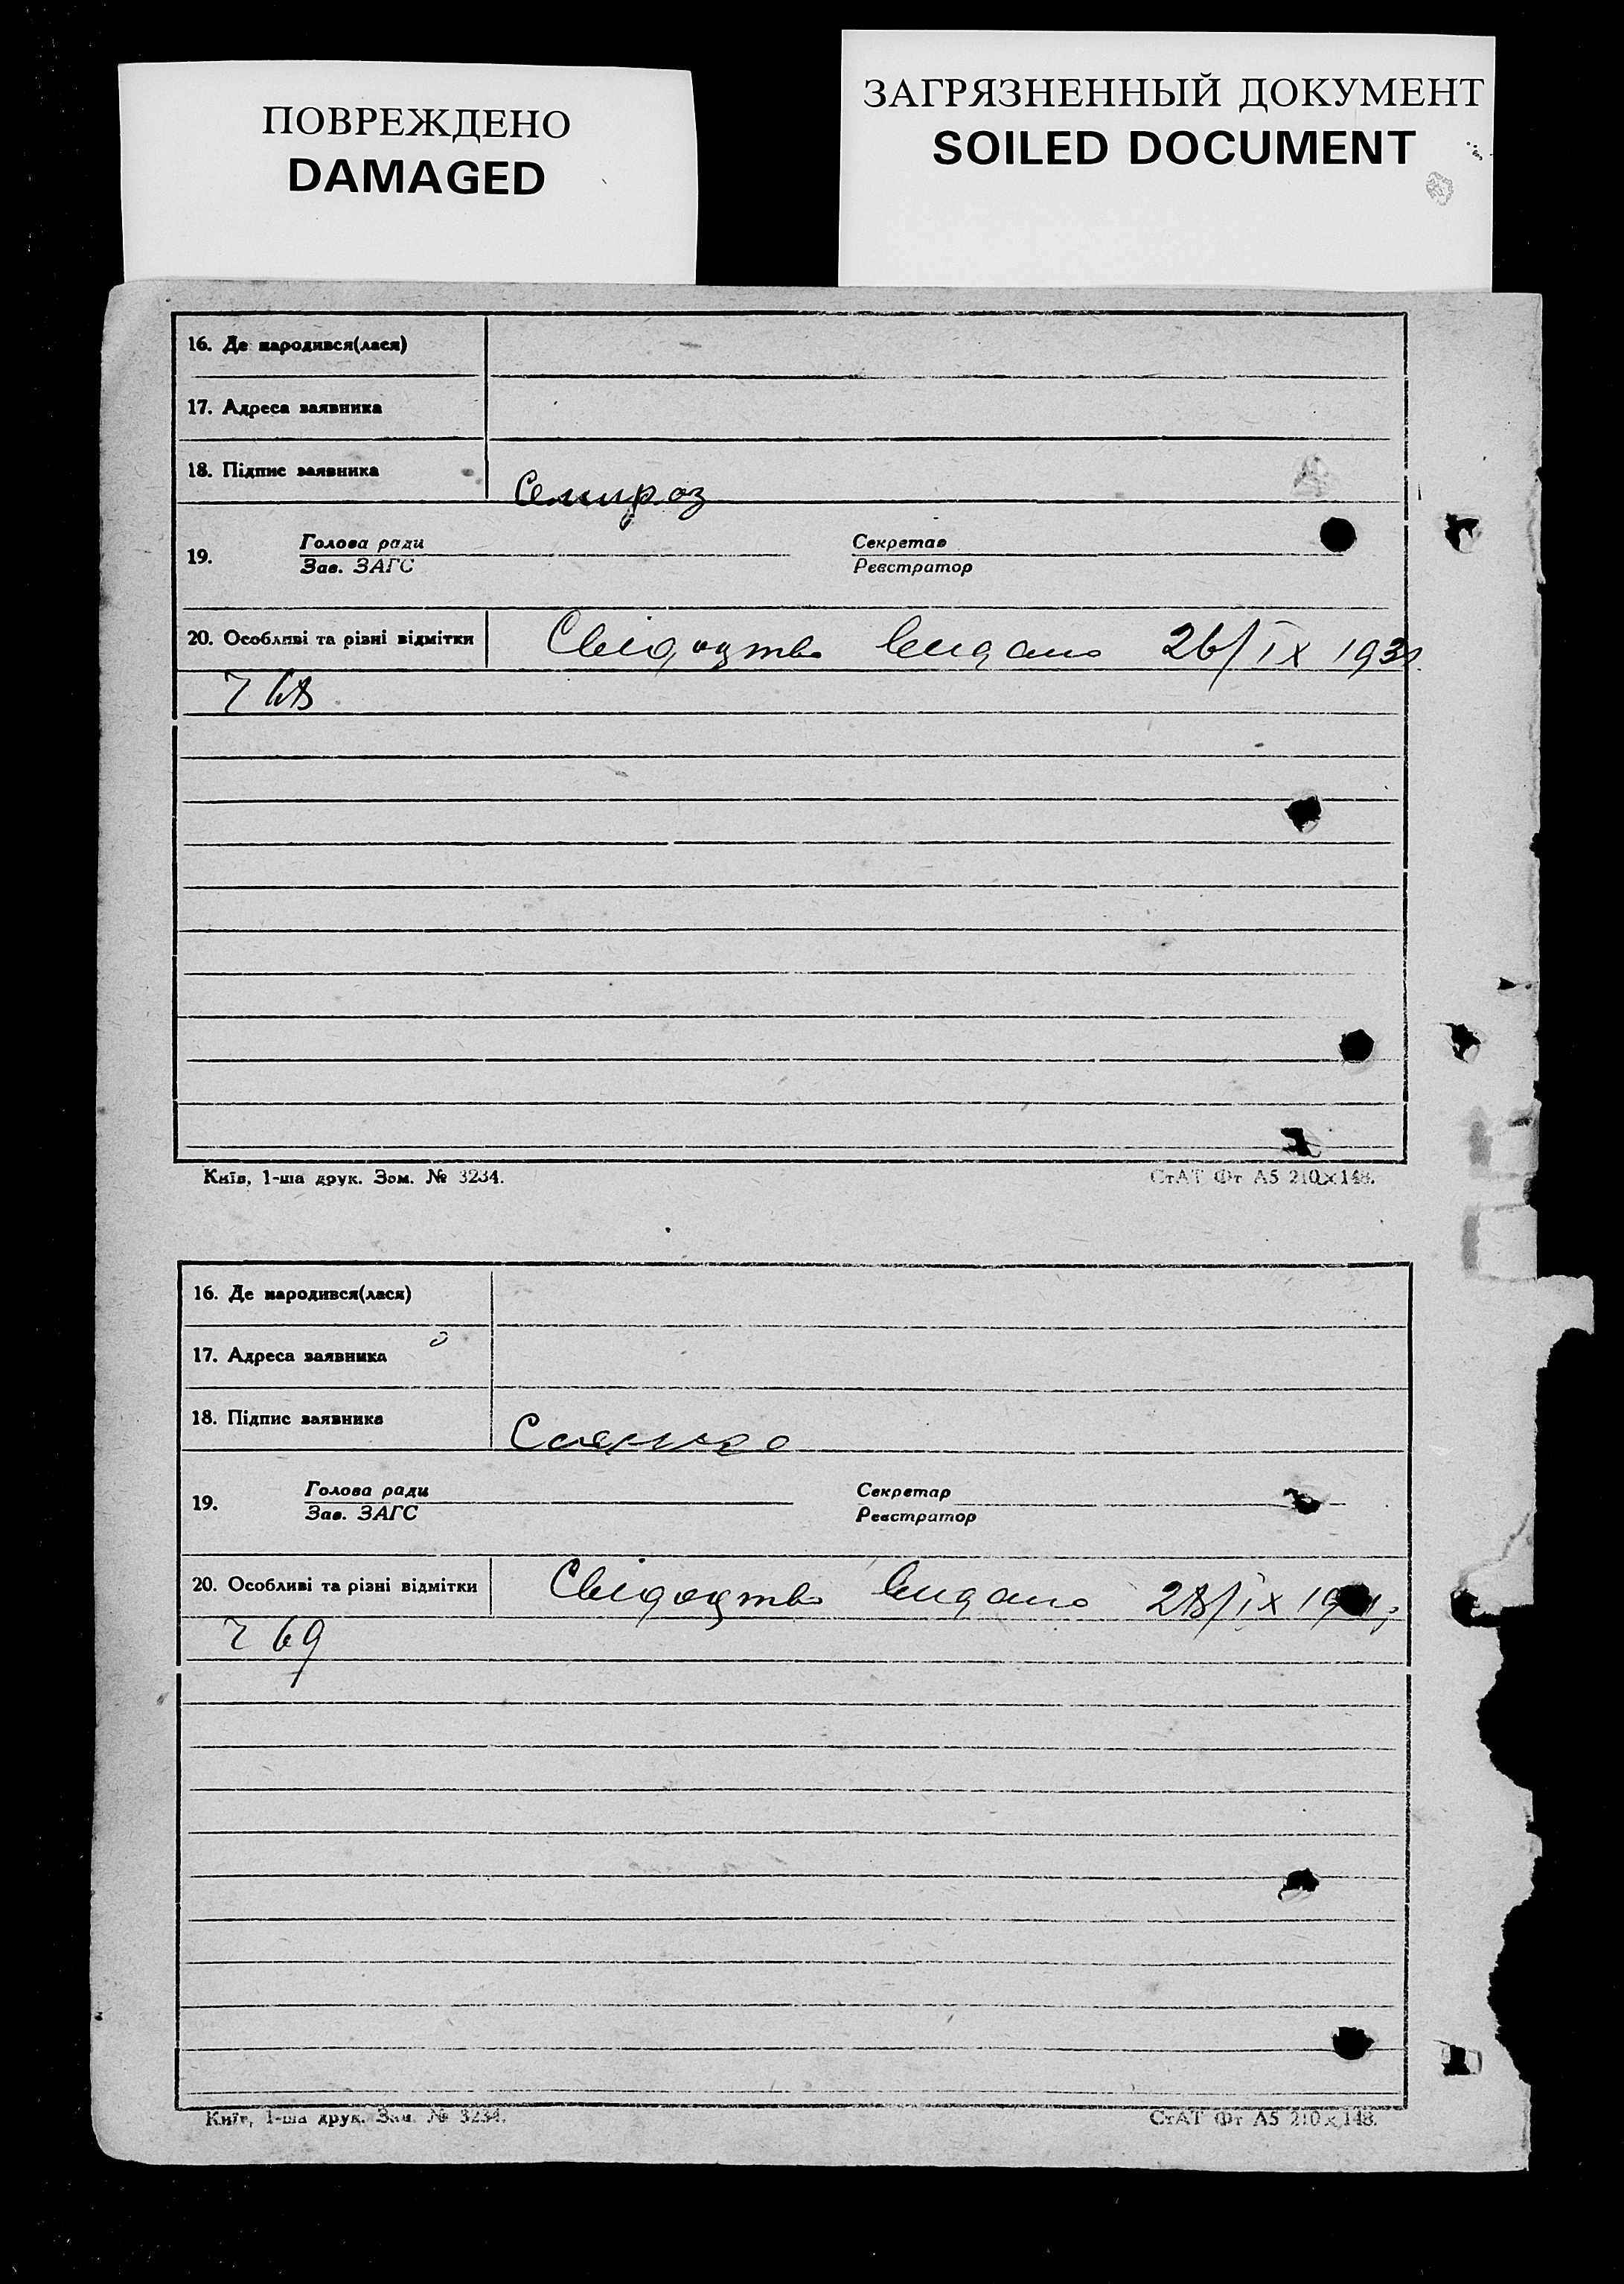 ПОВРЕЖДЕНО
DAMAGED
ЗАГРЯЗНЕННЫЙ ДОКУМЕНТ
SOILED DOCUMENT
16. Де народився(лася)
17. Адреса заявника
18. Підпис заявника
19. Голова ради Секретар
Зав. ЗАГС Реєстратор
20. Особливі та різні відмітки Свідоцтво видано 26/IX 193
768
Київ, 1-ша друк. Зам. № 3234. СтАТ Фт А5 210×148.
16. Де народився(лася)
17. Адреса заявника
18. Підпис заявника
19. Голова ради Секретар
Зав. ЗАГС Реєстратор
20. Особливі та різні відмітки Свідоцтво видано 28/IX
769
Київ, 1-ша друк. Зам. № 3234. СтАТ Фт А5 210×148.